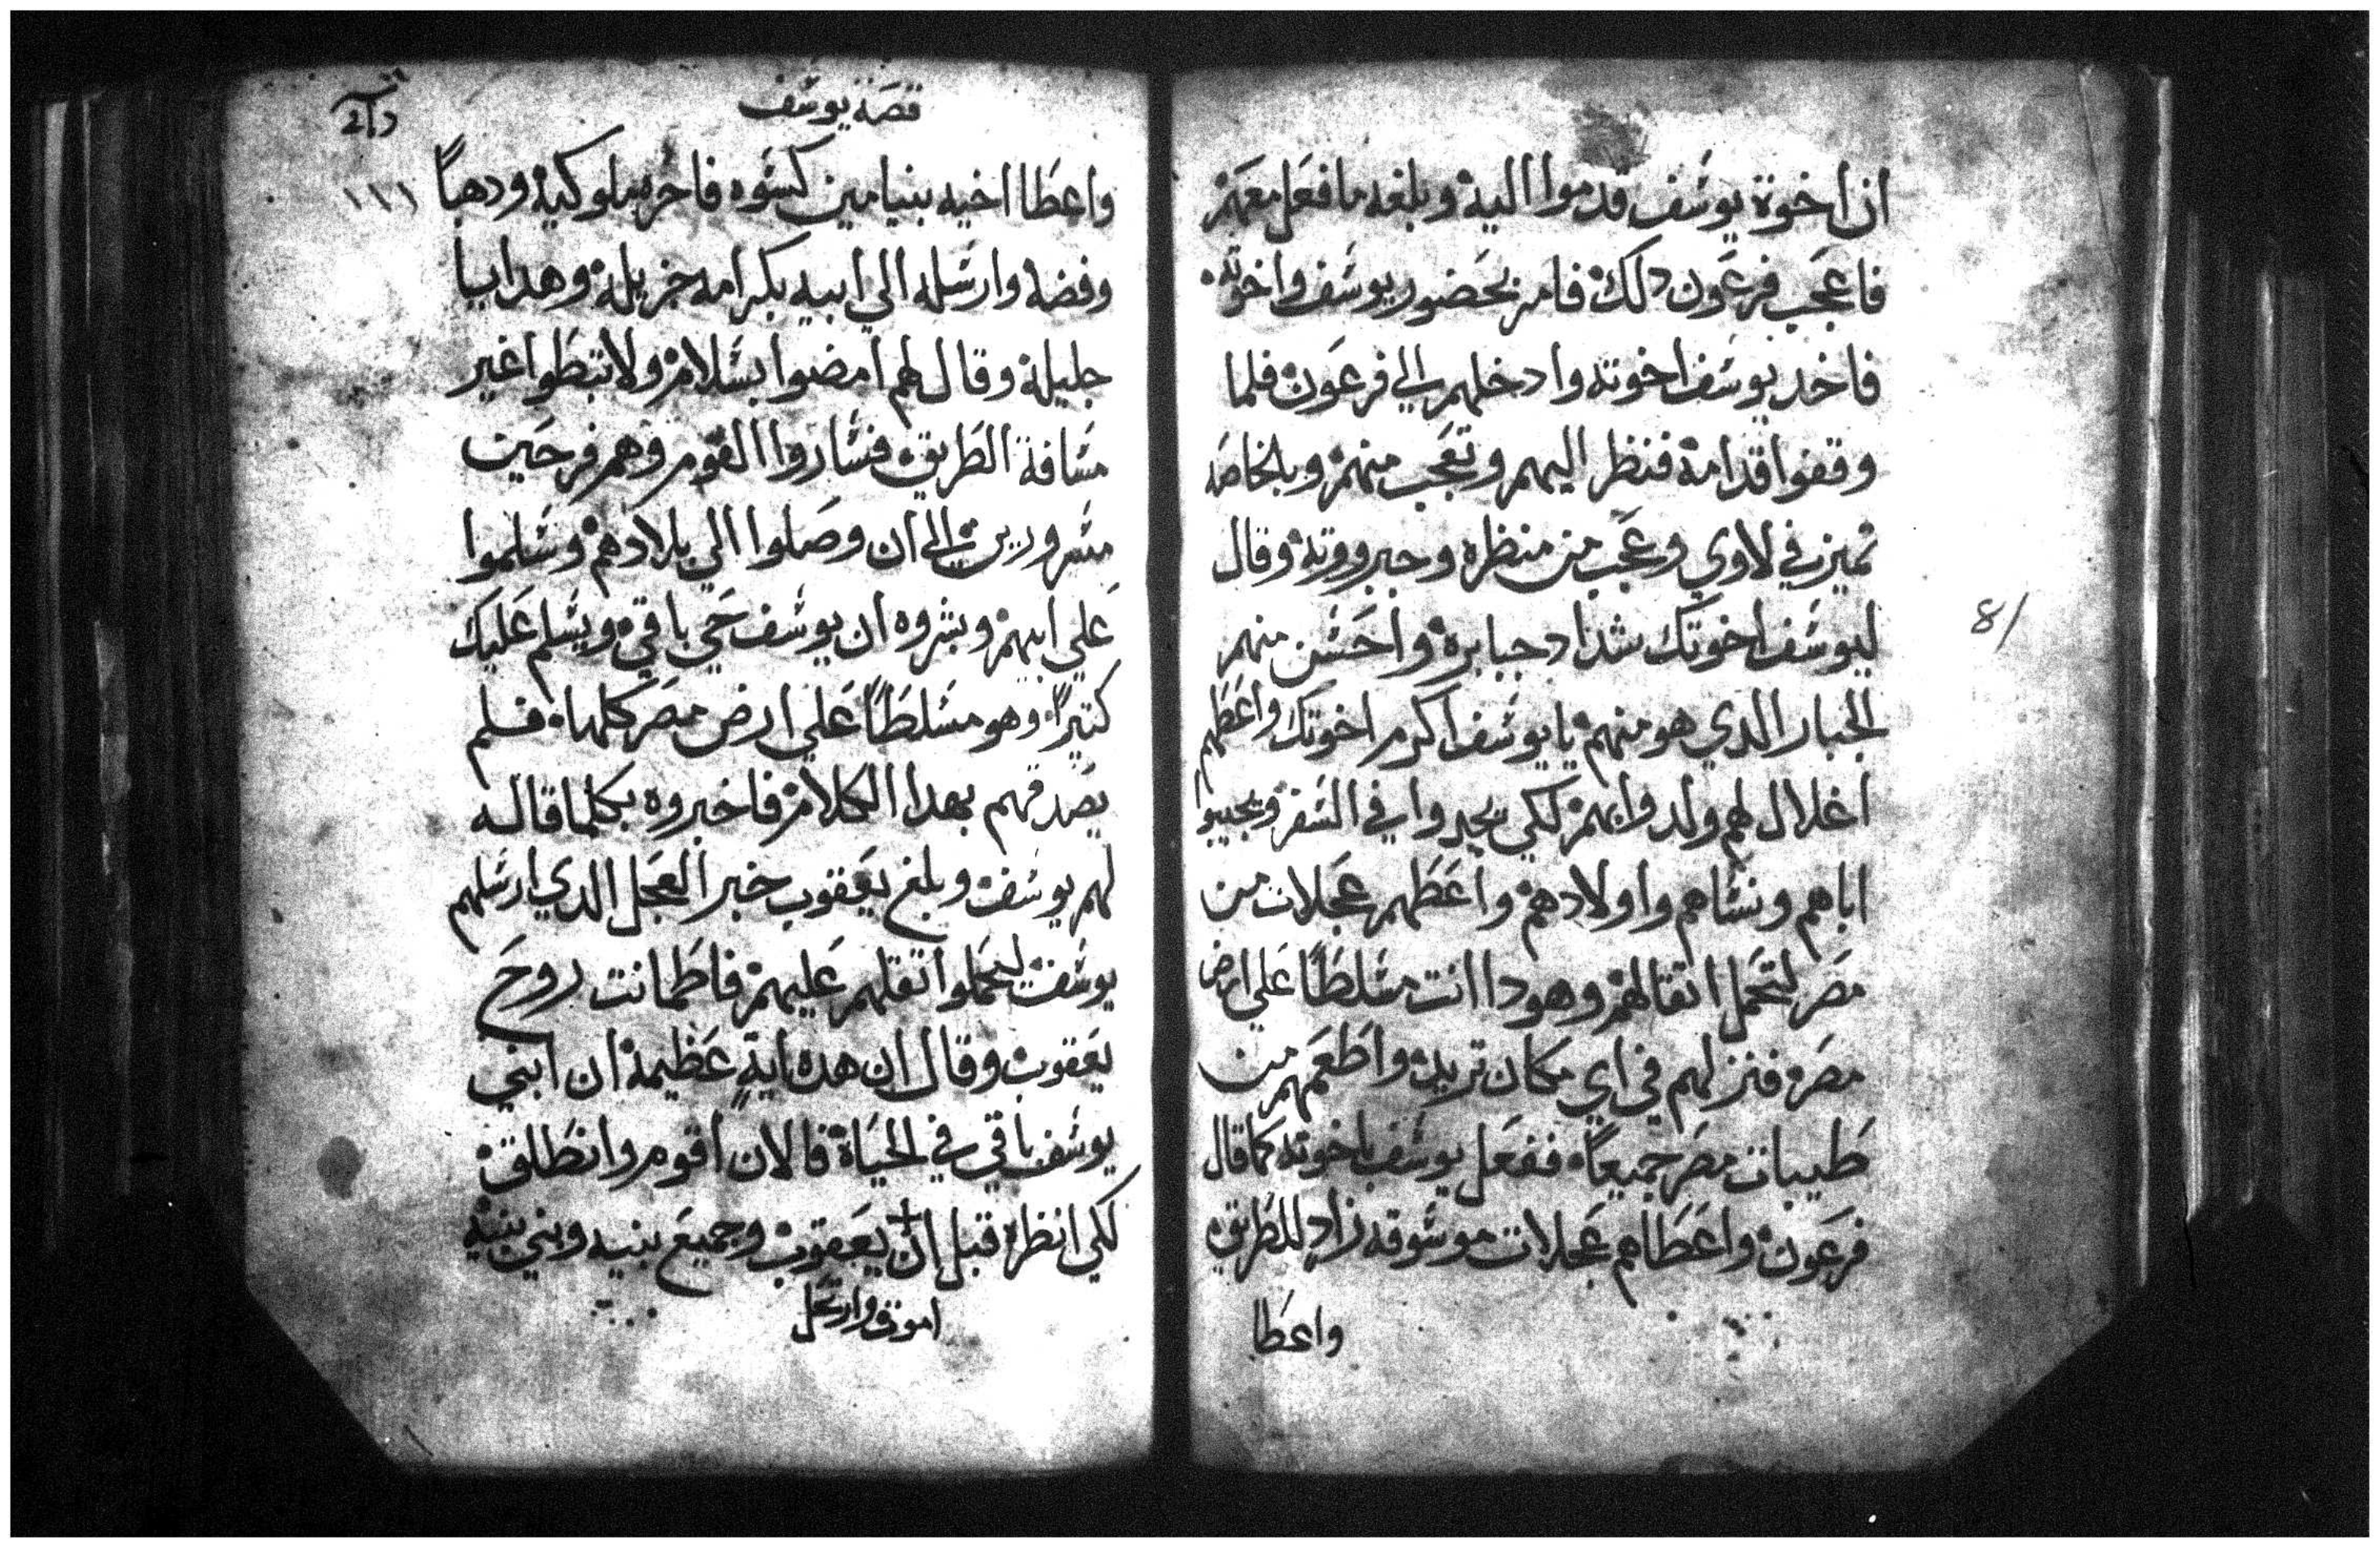 ان اخوة يوسف قدموا اليه وبلغه ما فعل معهم
فاعجب فرعون دلك فامر بحضور يوسف واخوته
فاخد يوسف اخوته وادخلهم الي فرعون فلما
وقفوا قدامه فنظر اليهم وتعجب منهم وبالخاصه
تميز في لاوي وعجب من منظره وجبروته وقال
ليوسف اخوتك شداد جبابره واحسن منهم
الجبار الدي هو منهم يا يوسف اكرم اخوتك واعطهم
اغلال لهم ولدوابهم لكي يجدوا في السفر ويجيبوا
اباهم ونساهم واولادهم واعطهم عجلات من
مصر لتحمل اتقالهم وهودا انت مسلطا علي ارض
مصر فنزلهم في اي مكان تريد واطعمهم من
طيبات مصر جميعا ففعل يوسف باخوته كما قال
فرعون واعطاهم عجلات موسوقه زاد للطريق
واعطا
81
قصة يوسف
١١١
واعطا اخيه بنيامين كسوه فاخره ملوكيه ودهبا
وفضه وارسله الي ابيه بكرامه جزيله وهدايا
جليله وقال لهم امضوا بسلام ولا تبطوا غير
مسافة الطريق فساروا القوم وهم فرحين
مسرورين الي ان وصلوا الي بلادهم وسلموا
علي ابيهم وبشروه ان يوسف حي باقي ويسلم عليك
كتيرا وهو مسلطا علي ارض مصر كلها فلم
يصدقهم بهدا الكلام فاخبروه بكلما قاله
لهم يوسف وبلغ يعقوب خبر العجل الدي ارسلهم
يوسف ليحملوا تقلهم عليهم فاطمانت روح
يعقوب وقال ان هده اية عظيمة ان ابني
يوسف باقي في الحياة فالان اقوم وانطلق
لكي انظره قبل ان يعقوب وجميع بنيه وبني بنيه
اموت وارتحل